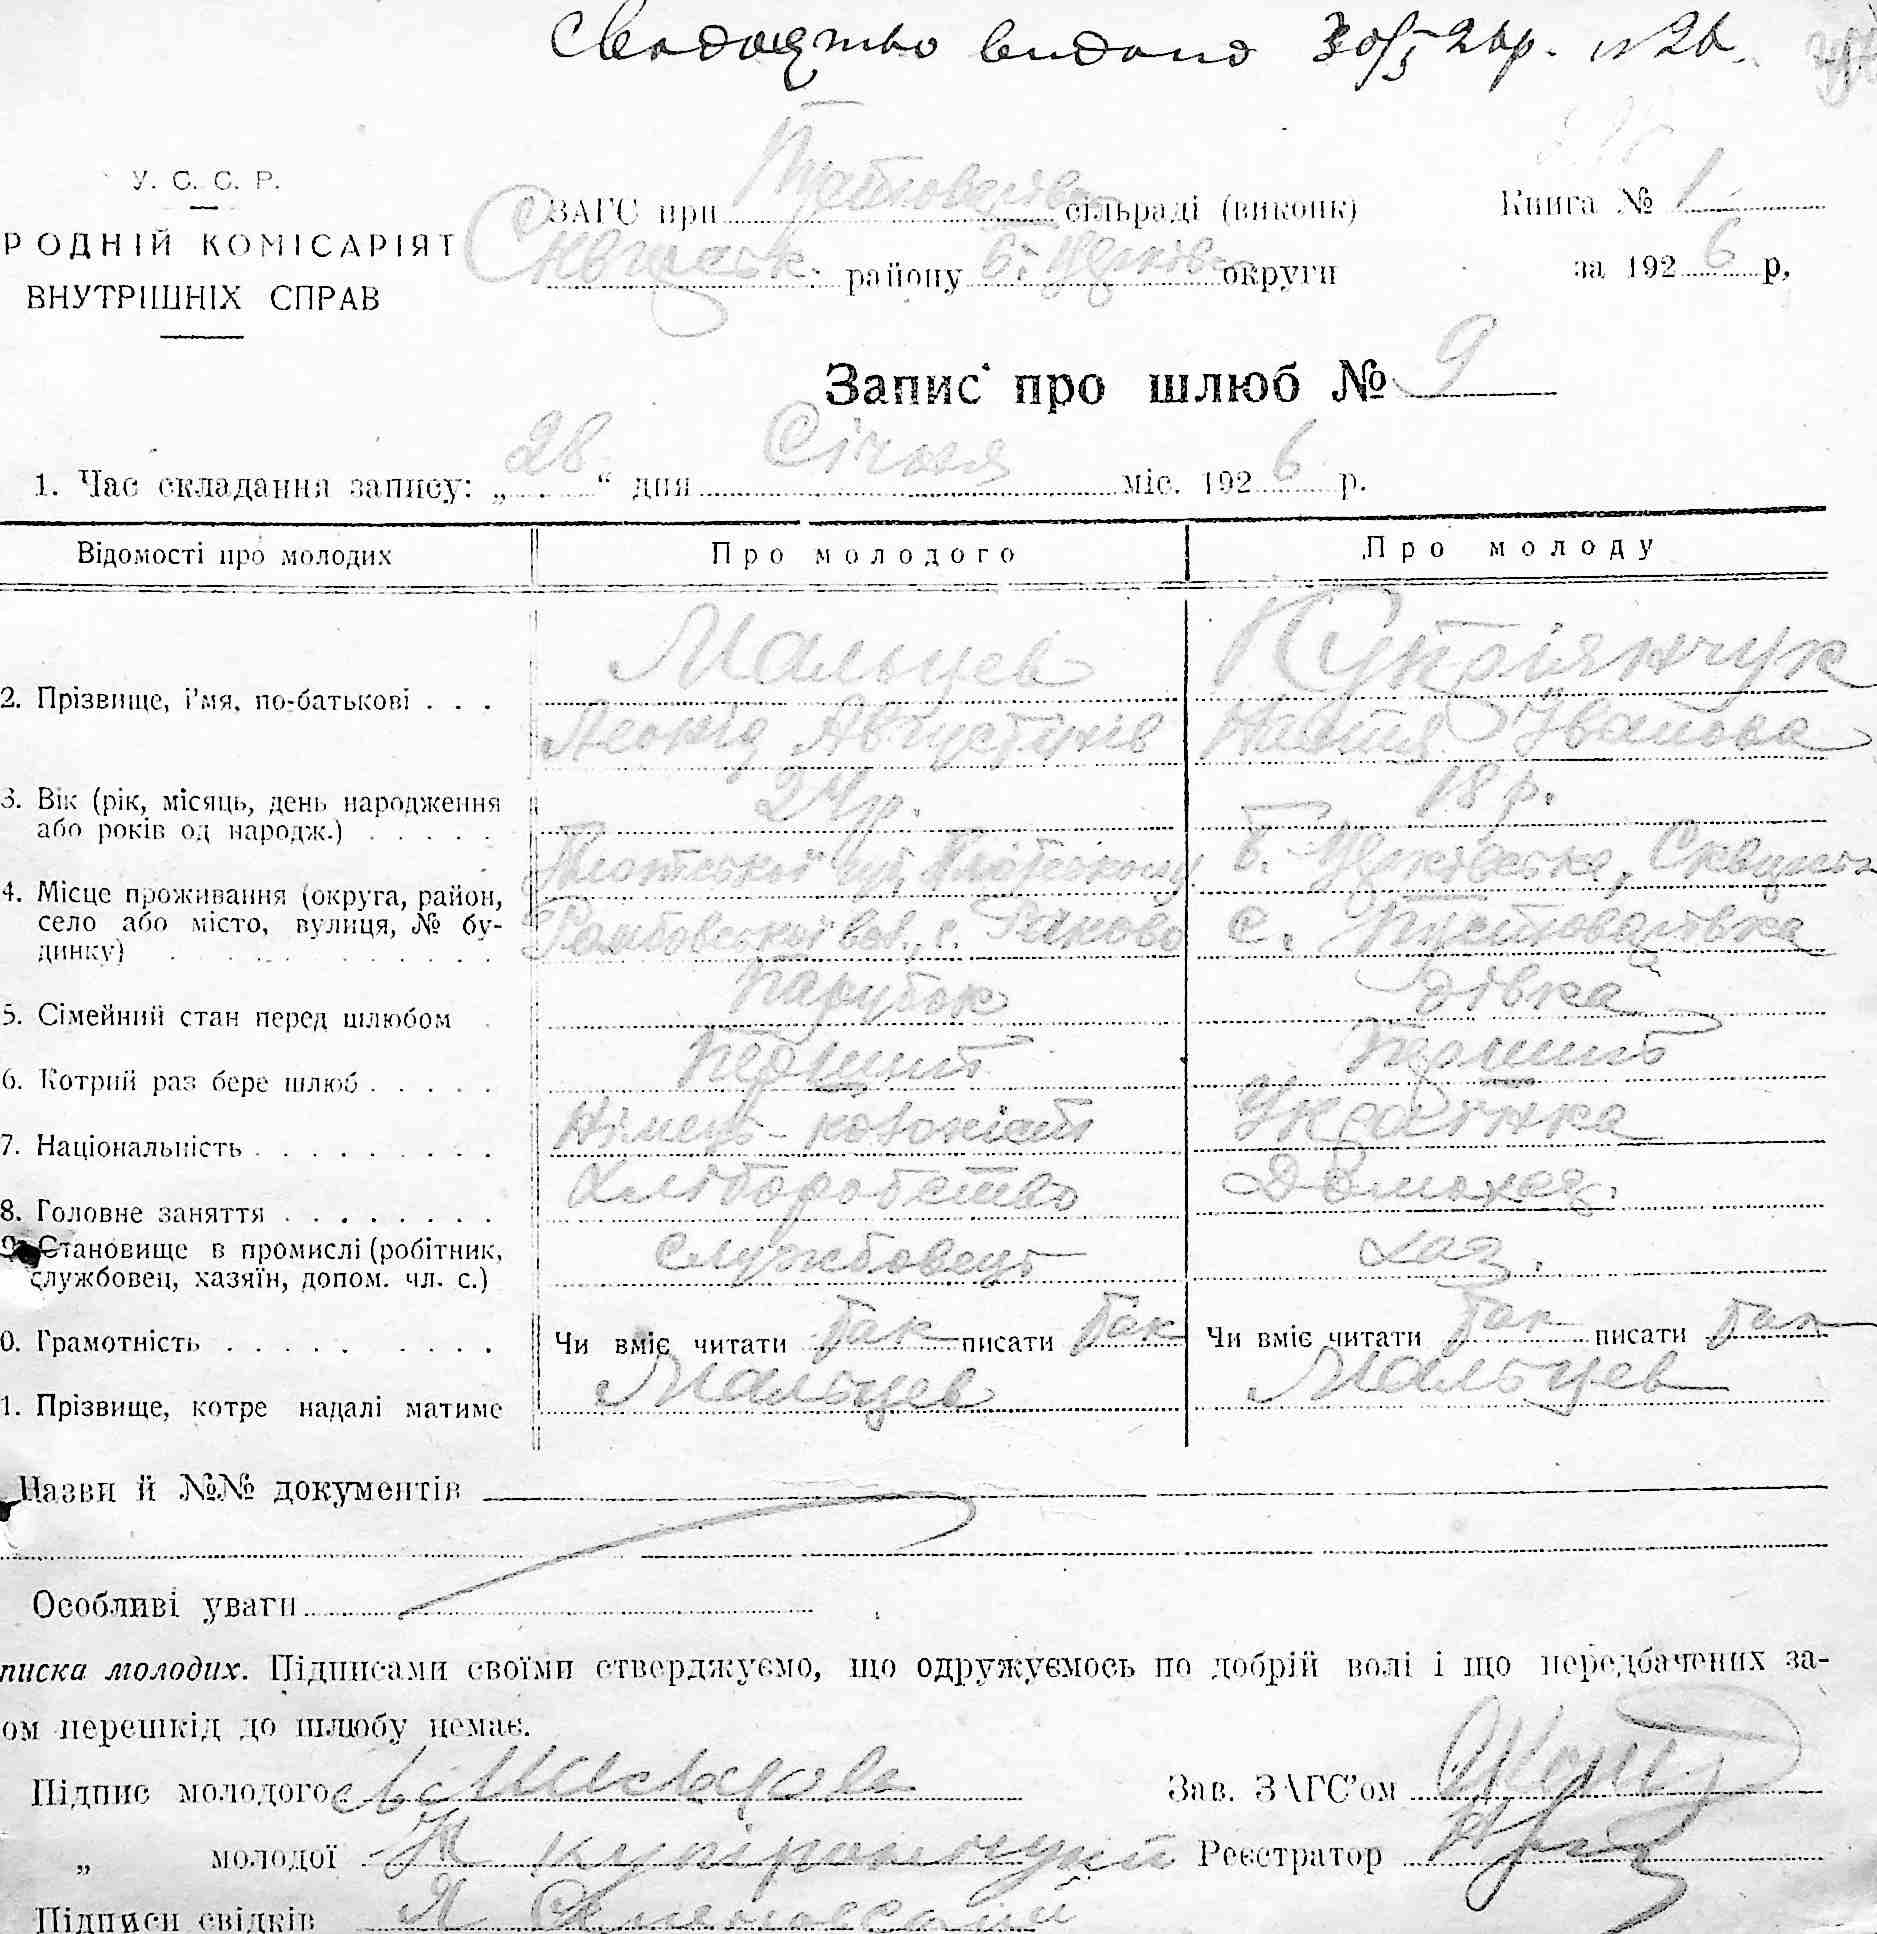 Свидоцтво видано 30/I 26р. №26.
У. С. С. Р.
РОДНІЙ КОМІСАРІЯТ
ВНУТРІШНІХ СПРАВ
ЗАГС при Пустоварівск. сільраді (виконк)
Сквирськ. району Б. Церківс. округи
Книга № 1
за 1926 р,
Запис про шлюб № 9
1. Час складання запису: „28“ дня Січня міс. 1926 р.
Відомості про молодих Про молодого Про молоду
Мальцев Купріянчук
2. Прізвище, і'мя, по-батькові . . .
Леонід Августинів Настя Іванова
24р. 18 р.
3. Вік (рік, місяць, день народження
або років од народж.) . . . . .
Б. Церківська, Сквирськ
4. Місце проживання (округа, район,
село або місто, вулиця, № бу-
динку) . . . . . . . . . .
вол., с. Раково с. Пустоварівка
5. Сімейний стан перед шлюбом . Парубок дівка
6. Котрий раз бере шлюб . . . . . Перший Перший
7. Національність . . . . . . . . . Німець-колоніст Українка
8. Головне заняття . . . . . . . . Хліборобство Домохаз.
9. Становище в промислі (робітник,
службовец, хазяїн, допом. чл. с.) Службовець хаз.
0. Грамотність . . . . . . . . . Чи вміє читати так писати так Чи вміє читати так писати так
1. Прізвище, котре надалі матиме Мальцев Мальцев
Назви й №№ документів
Особливі уваги
писка молодих. Підписами своїми стверджуємо, що одружуємось по добрій волі і що передбачених за-
ом перешкід до шлюбу немає.
Підпис молодого Л Мальцев Зав. ЗАГС'ом
„ молодої Н Реєстратор
Підписи свідків Я